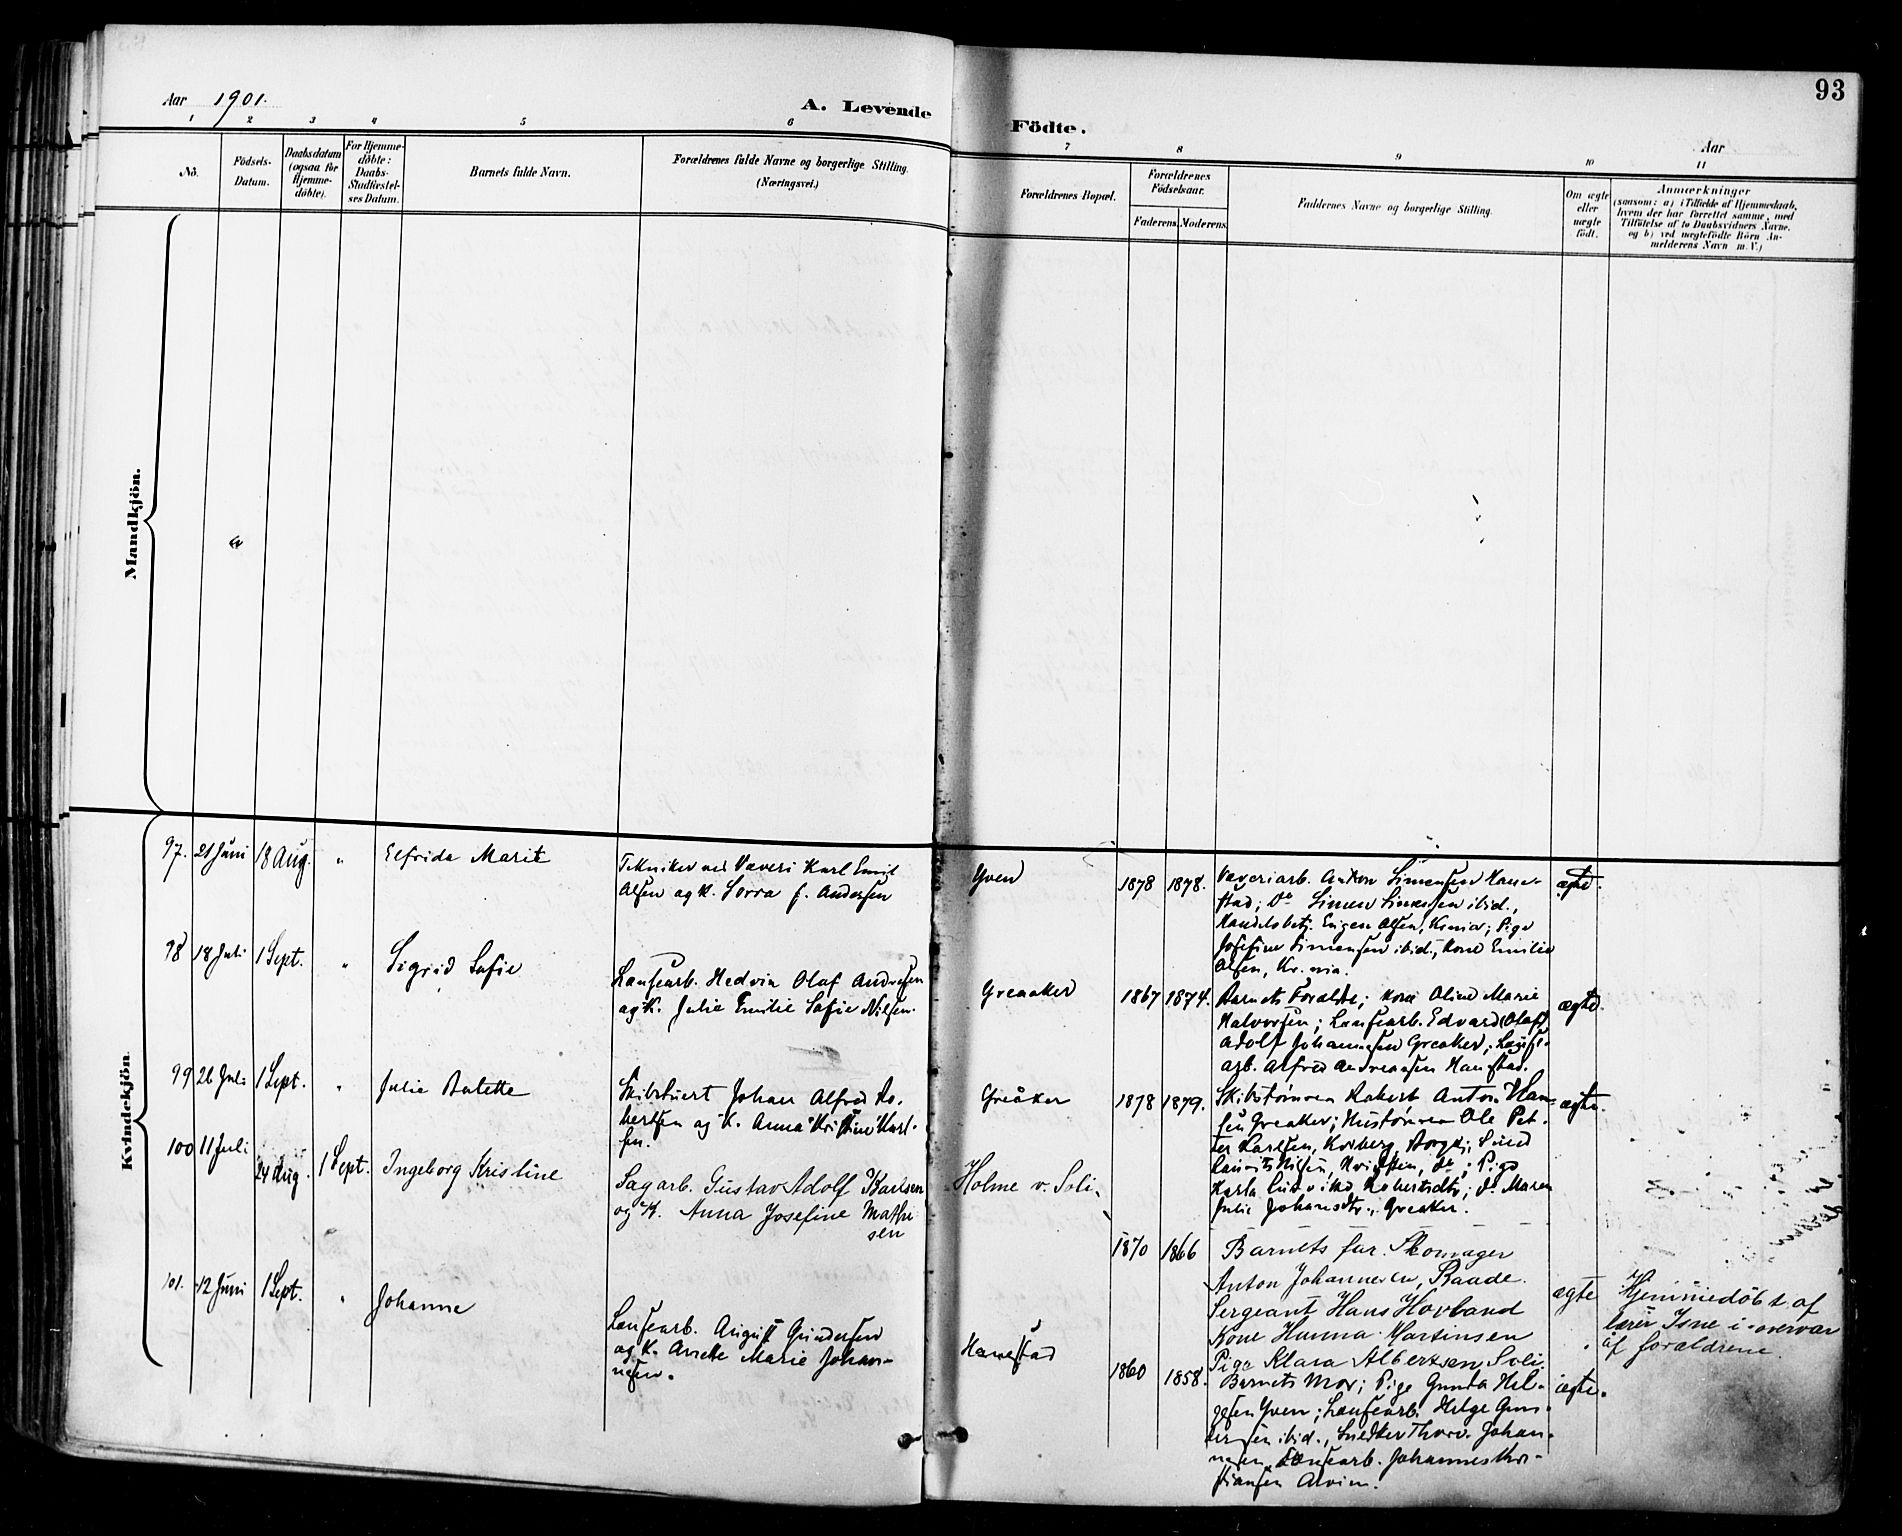 93
Aar 1901.
A. Levende
Födte.
Aar
1 2 3 4 5 6
7 8 9 10 11
No.
Födsels-
Datum.
Daabsdatum
(ogsaa for
Hjemme-
døbte).
For Hjemme-
døbte:
Daabs-
Stadfæstel-
ses Datum.
Barnets fulde Navn.
Forældrenes fulde Navne og borgerlige Stilling
(Næringsvei.)
Forældrenes Bopæl.
Forældrenes
Födselsaar.
Faderens. Moderens.
Faddernes Navne og borgerlige Stilling.
Om ægte
eller
uægte
födt.
Anmærkninger
(saasom: a) i Tilfælde af Hjemmedaab,
hvem der har forrettet samme, med
Tilföielse af to Daabsvidners Navne.
og b) ved uægtefödte Börn An-
melderens Navn m. V.)
Mandkjön.
Kvindekjön.
97. 21 Juni 18 Aug. " Elfrida Marie
Tekniker ved Væveri Karl Emil
Olsen og K. f. Andersen
Yven
1878 1878.
Væveriarb. Anton Simensen Hanne-
stad; Do Simen Simensen ibid.,
Handelsbetj. Eugen Olsen, Kr.nia; Pige
Josefine Simensen ibid., Kone Emilie
Olsen, Kr.nia.
ægte.
98 18 Juli 1 Sept. " Sigrid Sofie
Løusearb. Hedvin Olaf Andresen
og K. Julie Emilie Sofie Nilsen.
Greaaker
1867 1874.
Barnets Forældre; Kone Oline Marie
Halvorsen; Løusearb. Edvard (Olaf)
Adolf Johannesen Greaker; Løuse-
arb. Alfred Andreassen Hanestad.
ægte.
99 26 Juli 1 Sept. " Julie Bolette
Skibstuert Johan Alfred Ro-
bertsen og K. Anna Kristine Karl-
sen.
Greåker
1878 1879.
Skibstømrer Robert Anton Han-
sen Greaker; Hustømrer Ole Pet-
ter Karlsen, Korberg, Borge; Smed
Laurits Nilsen, do; Pige
Karla Ludvikka Robertsdtr; do Maren
Julie Johansdtr., Greaker.
ægte.
100 11 Juli 24 Aug. 1 Sept. Ingeborg Kristine
Sagarb. Gustav Adolf Karlsen
og K. Anna Josefine Mathi
sen
Holme v. Soli.
1870 1866
Barnets far. Skomager
Anton Johannesen, Raade.
Sergeant Hans Hovland
Kone Hanna Martinsen
Pige Klara Albertsen Soli.
ægte
Hjemmedøbt af
lærer Isne i overvær
af forældrene.
101. 12 Juni 1 Sept. " Johanne
Løusearb. August Gundersen
og K. Anette Marie Johan-
nesen.
Hannestad
1860 1858.
Barnets Mor; Pige Gunda Hel-
gesen Yven; Løusearb. Helge Gun-
dersen ibid., Snedker Thorv. Johan-
nesen, Løusearb. Johannes Kri-
stiansen Alvim.
ægte.